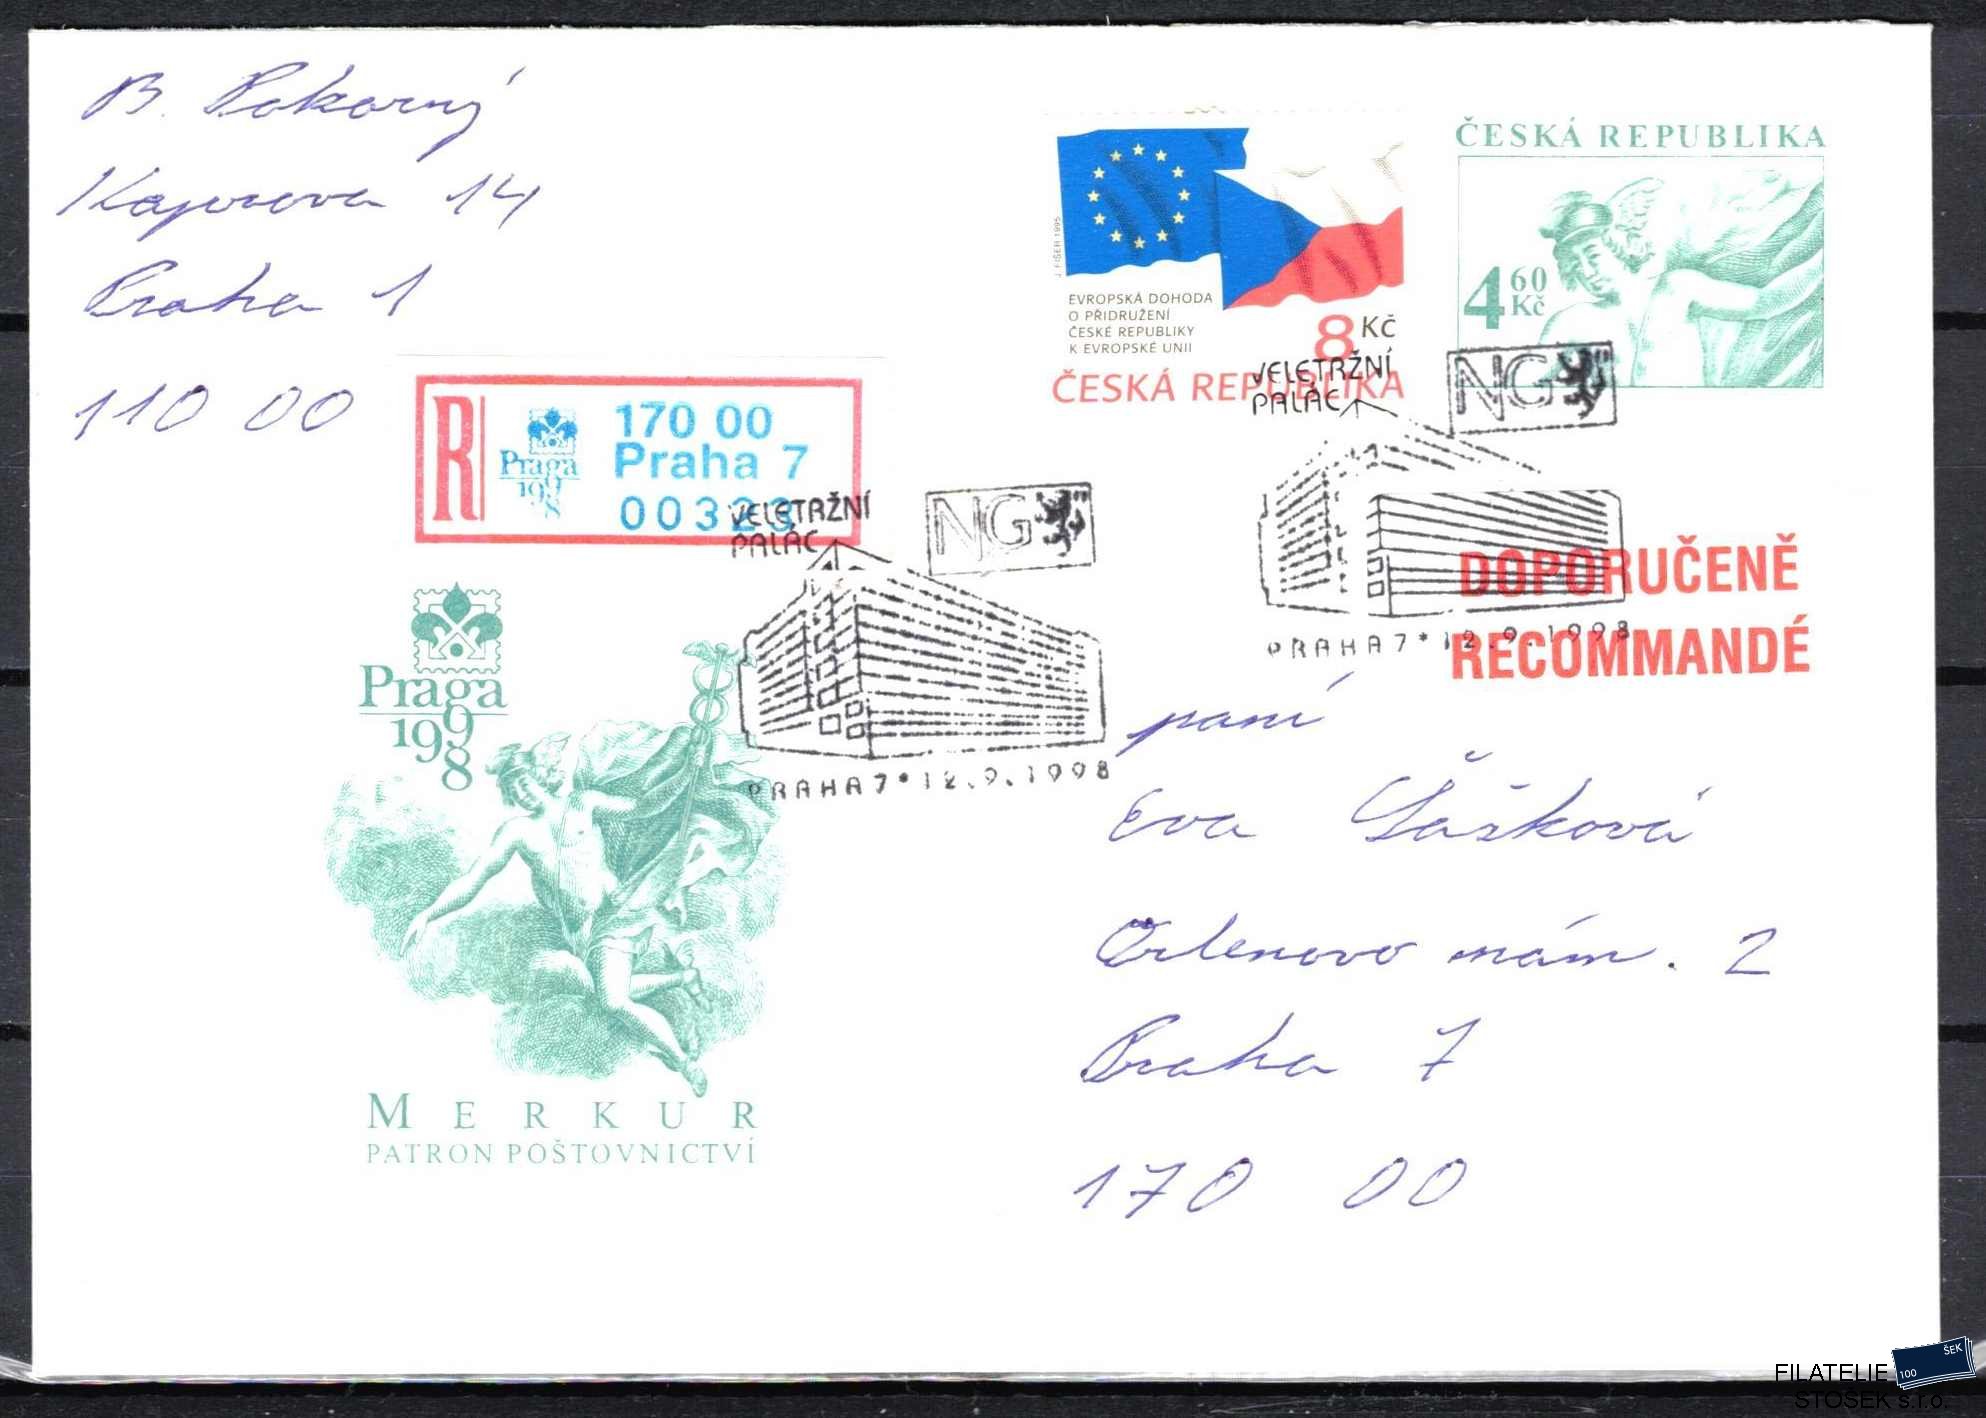 B. Pokorný
Kaprova 14
Praha 1
110 00
J. FIŠER 1995
EVROPSKÁ DOHODA
O PŘIDRUŽENÍ
ČESKÉ REPUBLIKY
K EVROPSKÉ UNII
8 Kč
ČESKÁ REPUBLIKA
ČESKÁ REPUBLIKA
4 60
Kč
R
Praga
1998
170 00
Praha 7
00323
VELETRŽNÍ
PALÁC
NG
PRAHA 7 * 12.9.1998
VELETRŽNÍ
PALÁC
NG
PRAHA 7 * 12.9.1998
DOPORUČENĚ
RECOMMANDÉ
Praga
1998
MERKUR
PATRON POŠTOVNICTVÍ
paní
Eva
Ortenovo nám. 2
Praha 7
170 00
FILATELIE
STOŠEK s.r.o.
100
ŠEK